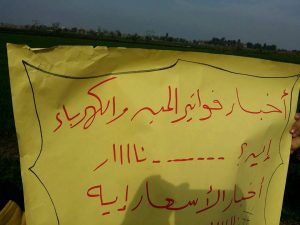 أخبار فواتير الميه والكهرباء
إيه؟ ------- نااار
أخبار الأسعار إيه